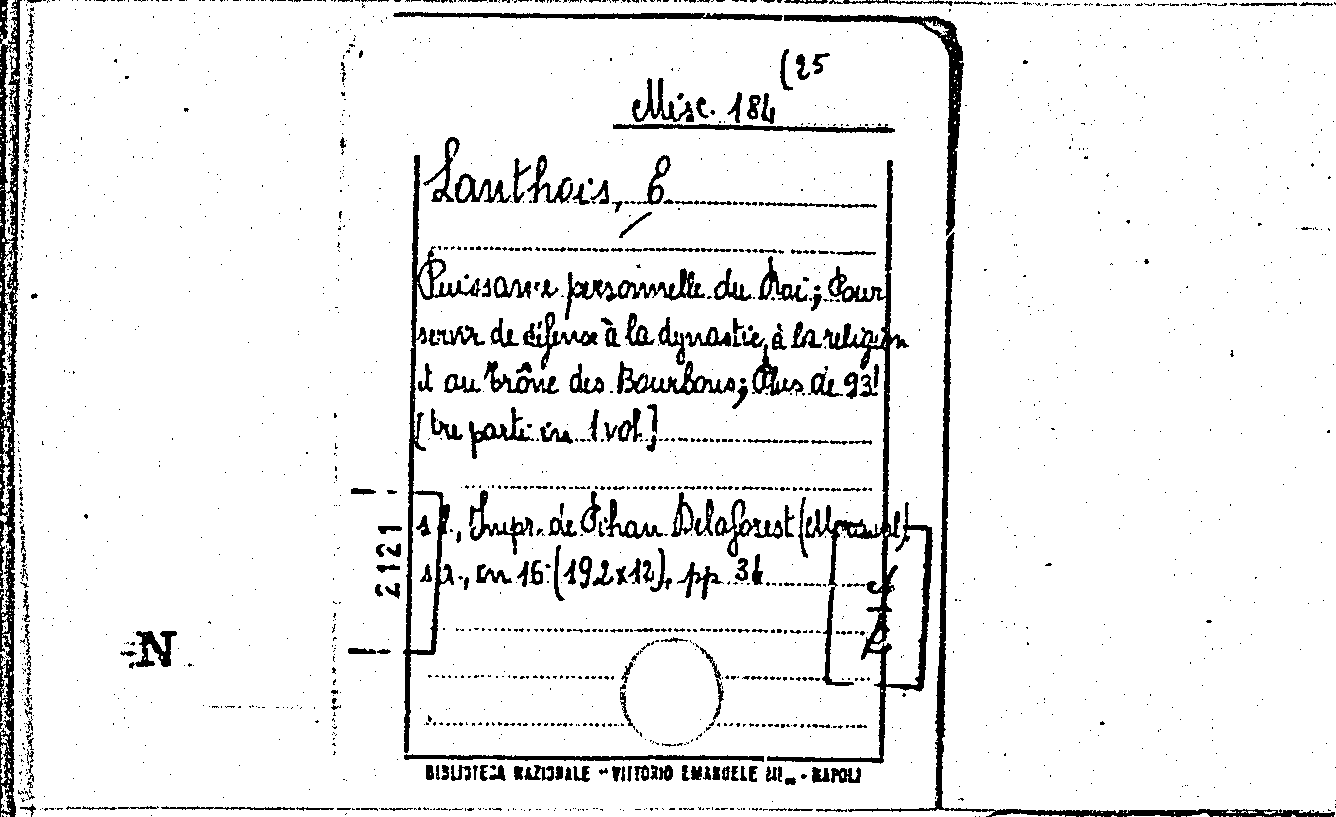 (25
Misc. 184
Lanthois, E
Puissance personnelle du Roi; Pour
servir de défense à la dynastie, à la religion
et au Trône des Bourbons; Plus de 93!
[tre parti in 1 vol.]
s.l., Impr. de Pihan Delaforest (Morinval)
s.a., in 16 (192x12), pp 36
2121
N
BIBLIOTECA NAZIONALE "VITTORIO EMANUELE III" - NAPOLI